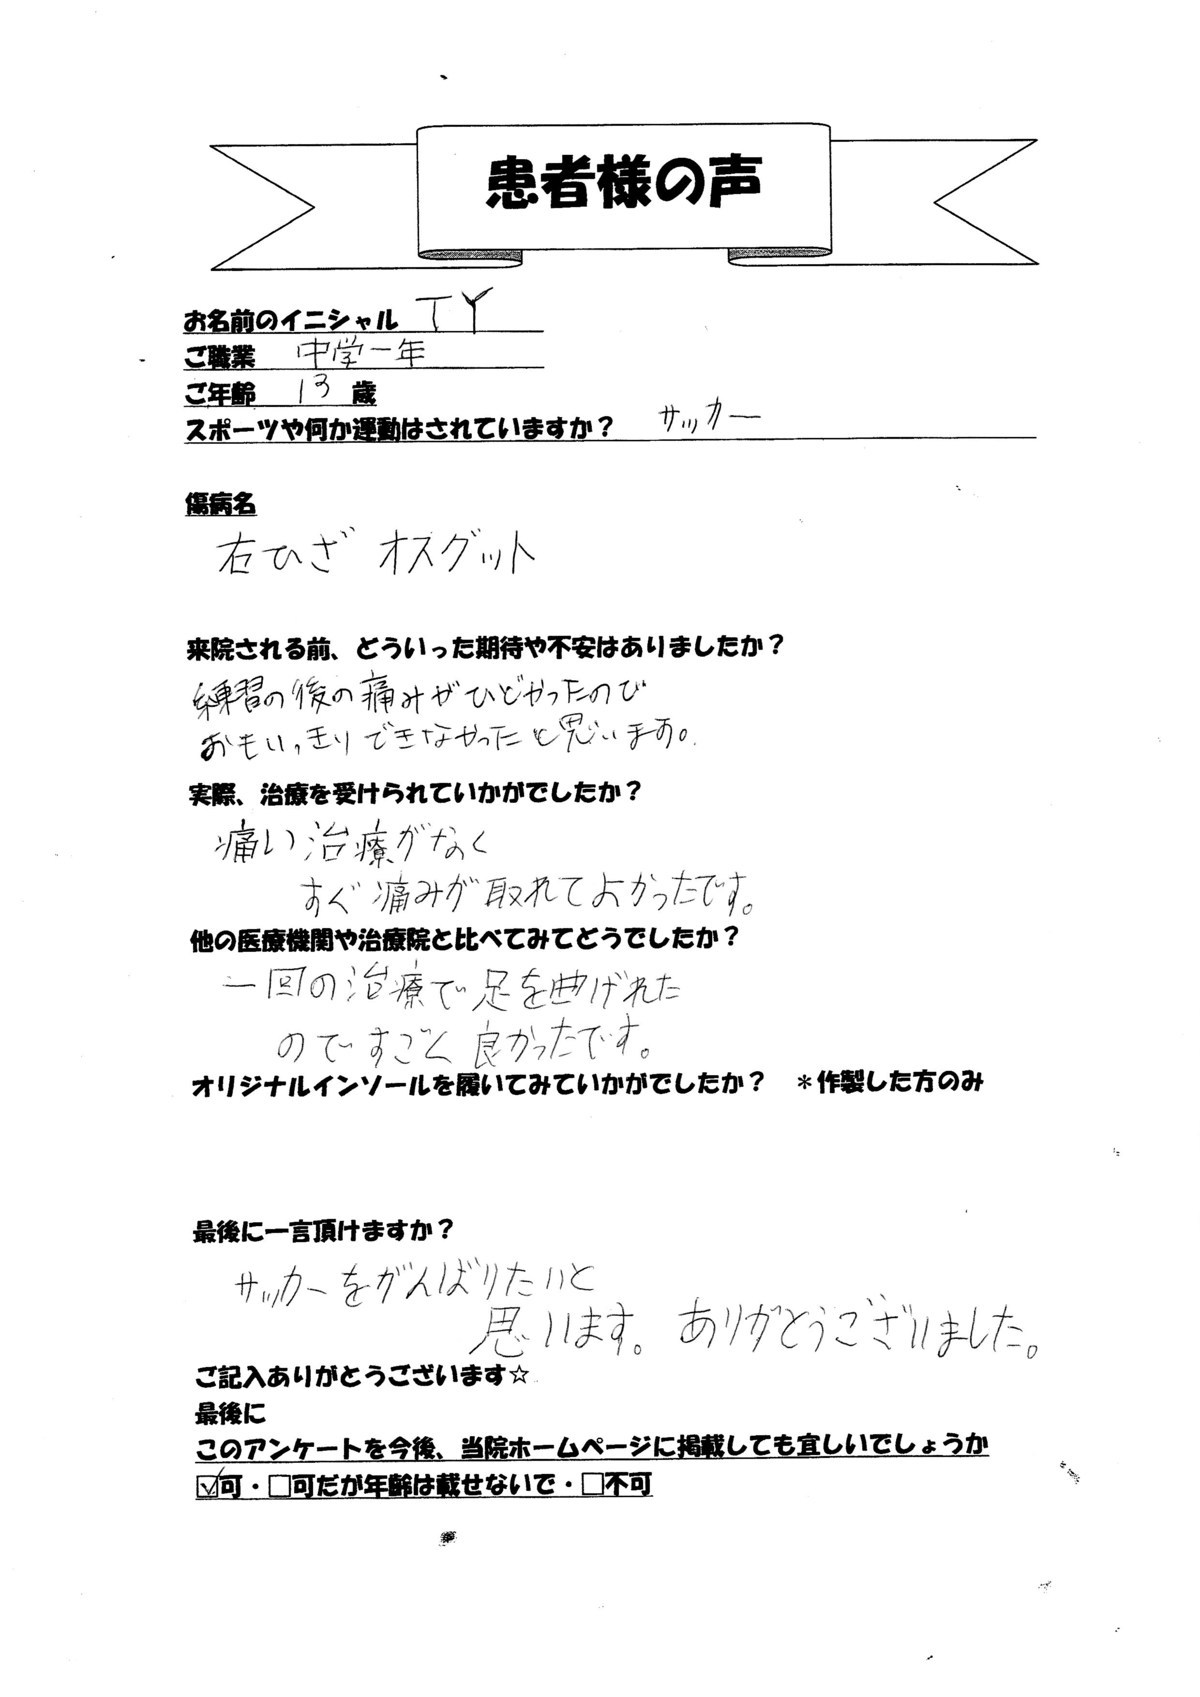 患者様の声
お名前のイニシャル TY
ご職業 中学一年
ご年齢 13 歳
スポーツや何か運動はされていますか？ サッカー
傷病名
右ひざ オスグット
来院される前、どういった期待や不安はありましたか？
練習の後の痛みがひどかったので
おもいっきりできなかったと思います。
実際、治療を受けられていかがでしたか？
痛い治療がなく
すぐ痛みが取れてよかったです。
他の医療機関や治療院と比べてみてどうでしたか？
一回の治療で足を曲げれた
のですごく良かったです。
オリジナルインソールを履いてみていかがでしたか？ ＊作製した方のみ
最後に一言頂けますか？
サッカーをがんばりたいと
思います。ありがとうございました。
ご記入ありがとうございます☆
最後に
このアンケートを今後、当院ホームページに掲載しても宜しいでしょうか
☑可・□可だが年齢は載せないで・□不可